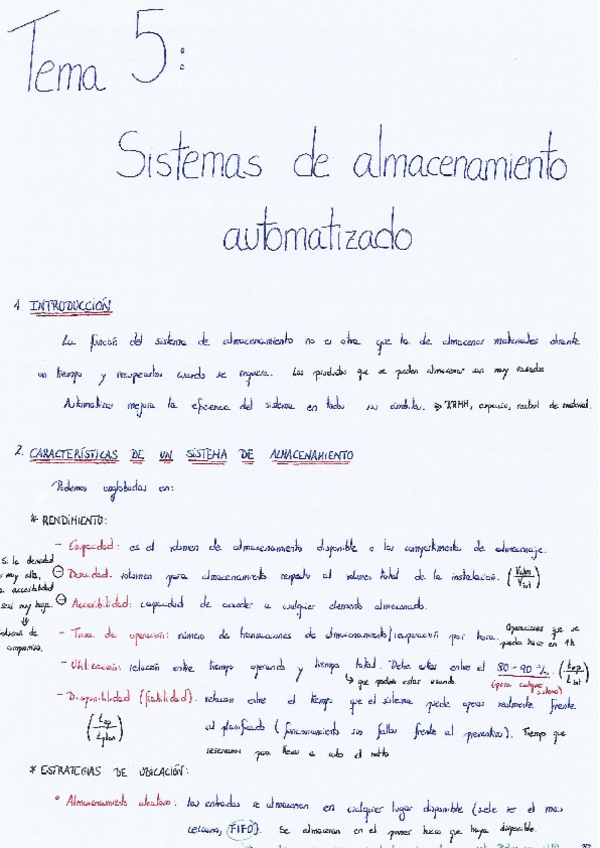 Tema 5:
Sistemas de almacenamiento
automatizado
1. INTRODUCCIÓN
La función del sistema de almacenamiento no es otra que la de almacenar materiales durante
un tiempo y recuperarlos cuando se requiera. Los productos que se pueden almacenar son muy variados
Automatizar mejora la eficiencia del sistema en todos su ámbito. ⇒ RRHH, espacio, control de material.
2. CARACTERÍSTICAS DE UN SISTEMA DE ALMACENAMIENTO
Podemos englobarlas en:
* RENDIMIENTO:
- Capacidad: es el volumen de almacenamiento disponible o los compartimentos de almacenaje.
Si la densidad
es muy alta,
la accesibilidad
será muy baja.
⇓
solución de
compromiso.
⊖ Densidad: volumen para almacenamiento respecto al volumen total de la instalación. (Valm/Vtot)
⊖ Accesibilidad: capacidad de acceder a cualquier elemento almacenado.
- Tasa de operación: número de transacciones de almacenamiento/recuperación por hora. Operaciones que se
puede hacer en 1h
- Utilización: relación entre tiempo operando y tiempo total. Debe estar entre el 80-90%. (top/ttot)
↳ que podría estar usando (para cualquier sistema)
- Disponibilidad (fiabilidad): relación entre el tiempo que el sistema puede operar realmente frente
(top/tplan) al planificado (funcionamiento sin fallos frente al preventivo). Tiempo que
reservamos para llevar a cabo el
* ESTRATEGIAS DE UBICACIÓN:
• Almacenamiento aleatorio: las entradas se almacenan en cualquier lugar disponible (suele ser el más
cercano, FIFO). Se almacenan en el primer hueco que haya disponible.